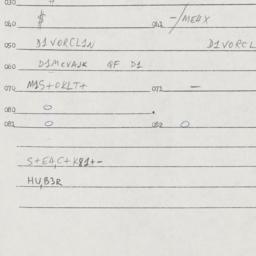 030
040 $ 042 -/ME4X
050 D1VORCL1N D1VORCL
060 D1MCVAJK QF D1
070 M1S+OKLT+ 072 —
080 0 .
081 0 082 0
S+E4,C+K81+-
HU,B3R